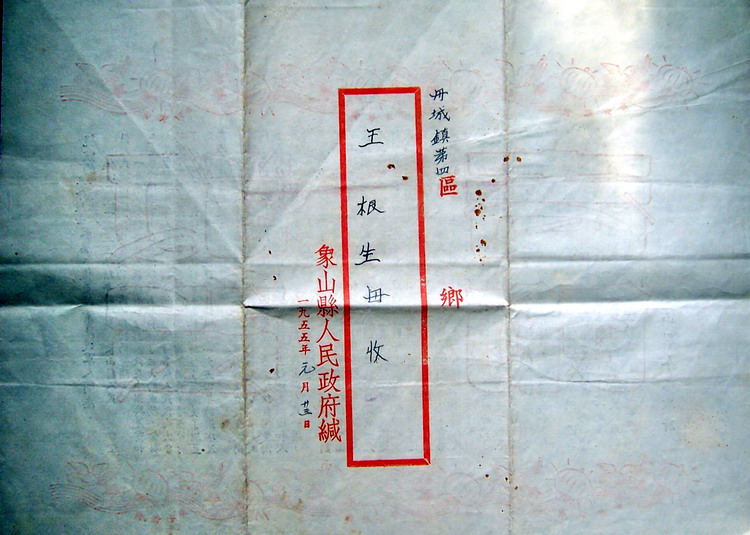 丹城鎮第四區 鄉
王根生毋收
象山縣人民政府緘
一九五五年元月廿三日